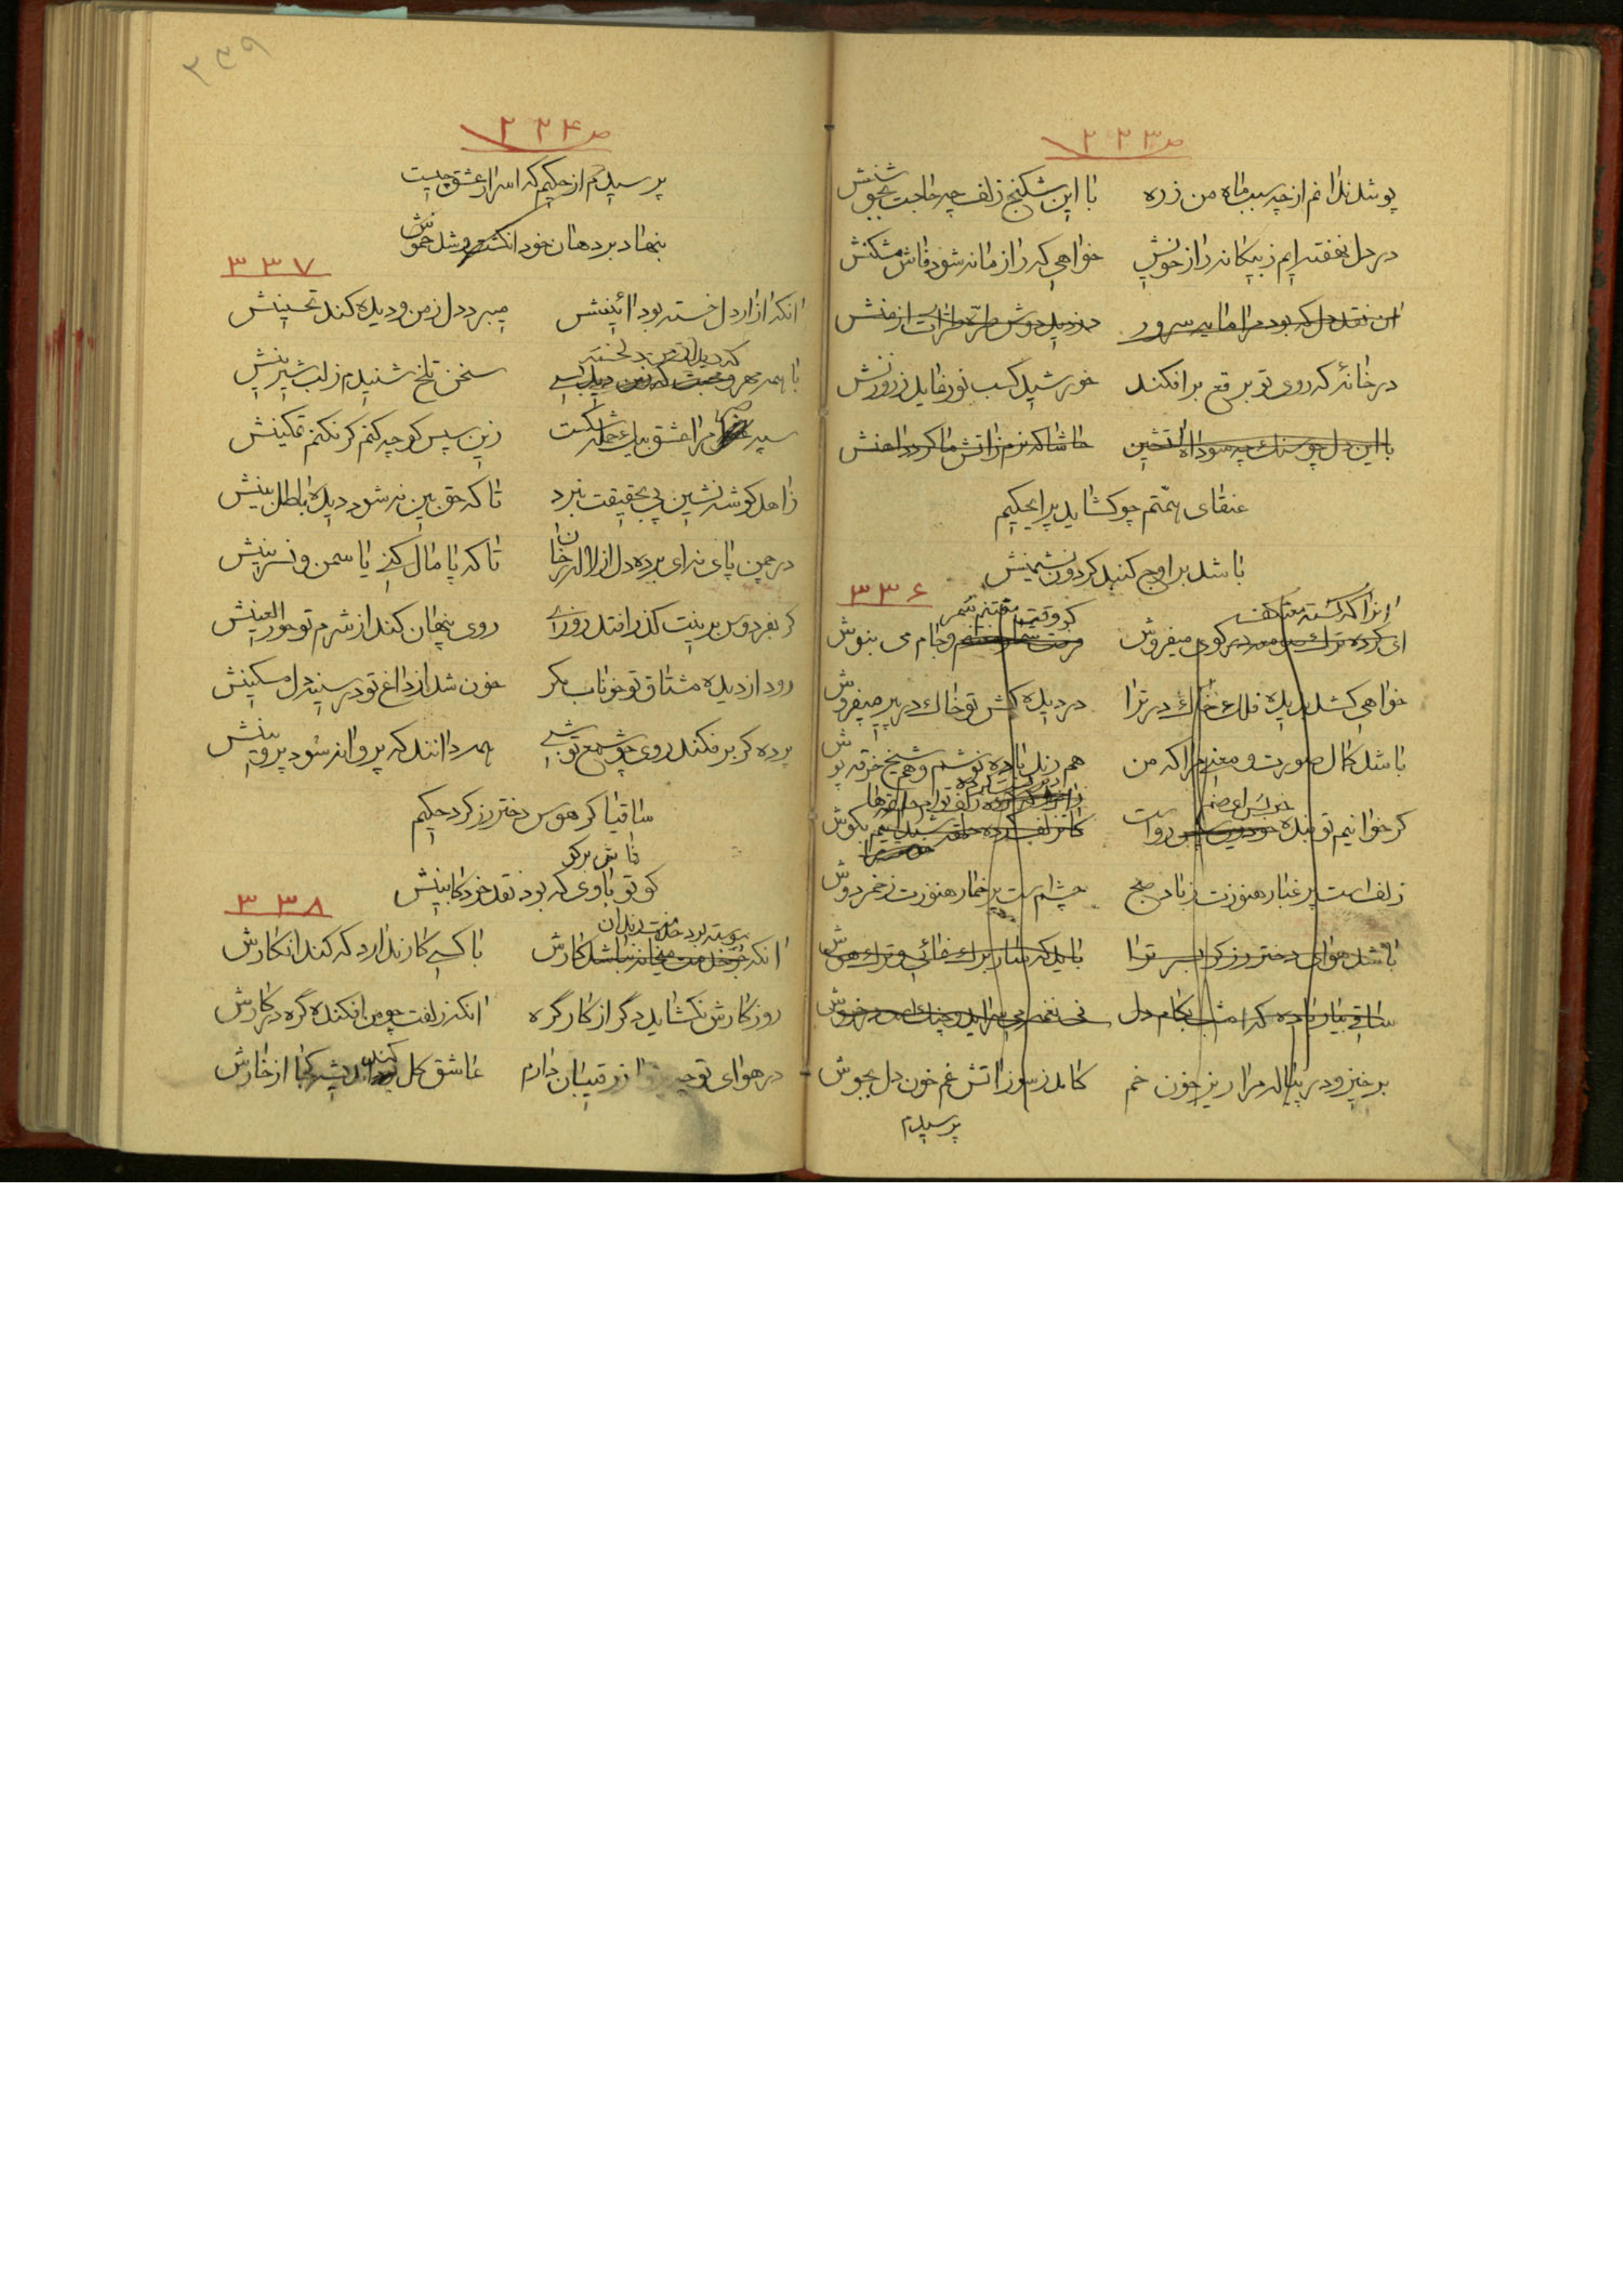 ص ۲۲۳
پوشد ندانم از چه سبب ماه من زره با این شکنج زلف چه حاجت بجوشنش
در دل نهفته ایم ز بیکانه راز خویش خواهی که راز ما نه شود فاش مشکنش
ان نقد دل که بود مرا مایه سرور دزدید دوش طره طرار از منش
در خانهٔ که روی تو برقع برافکند خورشید کسب نور نماید ز روزنش
با این دل چو سنک چه سود اه اتشین حاشا که نرم ز اتش ما کردد اهنش
عنقای همّتم چو کشاید پر ایحکیم
باشد بر اوج کنبد کردون نشیمنش
۳۳۶
انرا که کشته معتکف
ای کرده ترک کوی میفروش وجام می بنوش
خواهی کشد بدیده فلک خاک در ترا در دیده کش تو خاک در پیر میفروش
باشد کمال صورت و معنی مرا که من هم رند باده نوشم و هم شیخ خرقه پوش
کر خوانیم تو بنده رواست کز زلف کرده حلقه بکوش
زلف است پر غبار هنوزت ز باد صبح چشم است پر خمار هنوزت ز خمر دوش
باشد هوای دختر رز کر بسر ترا باید که
ساقی بیار باده که امشب بکام دل نی نغمه می سراید و چنک خروش
برخیز و در پیاله مرا ریز خون خم کامد ز سوز اتش غم خون دل بجوش
پرسیدم
ص ۲۲۴
پرسیدم از حکیم که اسرار عشق چیست
بنهاد بر دهان خود انکشت و شد خموش
۳۳۷
انکه ازار دل خسته بود ائینش میبرد دل ز من و دیده کند تحسینش
با همه مهر و محبت که سخن تلخ شنیدم ز لب شیرینش
سپه مرا عشق بیک حمله شکست زین سپس کو چه کنم کر نکنم تمکینش
زاهد کوشه نشین پی بحقیقت نبرد تا که حق بین نه شود دیده باطل بینش
در چمن پای نه ای برده دل از لاله رخان تا که پامال کنی یاسمن و نسرینش
کر بفردوس برینت کذر افتد روزی روی پنهان کند از شرم تو حور العینش
رود از دیده مشتاق تو خوناب مکر خون شد از داغ تو در سینه دل مسکینش
پرده کر برفکند روی چو شمع تو شبی همه دانند که پروانه شود پروینش
ساقیا کر هوس دختر رز کرد حکیم
فاش برکو
کو تو باوی که بود نقد خرد کابینش
۳۳۸
پیوسته بود خدمت رندان
انکه جز خدمت میخانه نباشد کارش با کسی کار ندارد که کند انکارش
روزکارش نکشاید دکر از کار کره انکه زلفت چو من افکنده کره در کارش
در هوای تو چه پروا ز رقیبان دارم عاشق کل کند اندیشه کجا از خارش